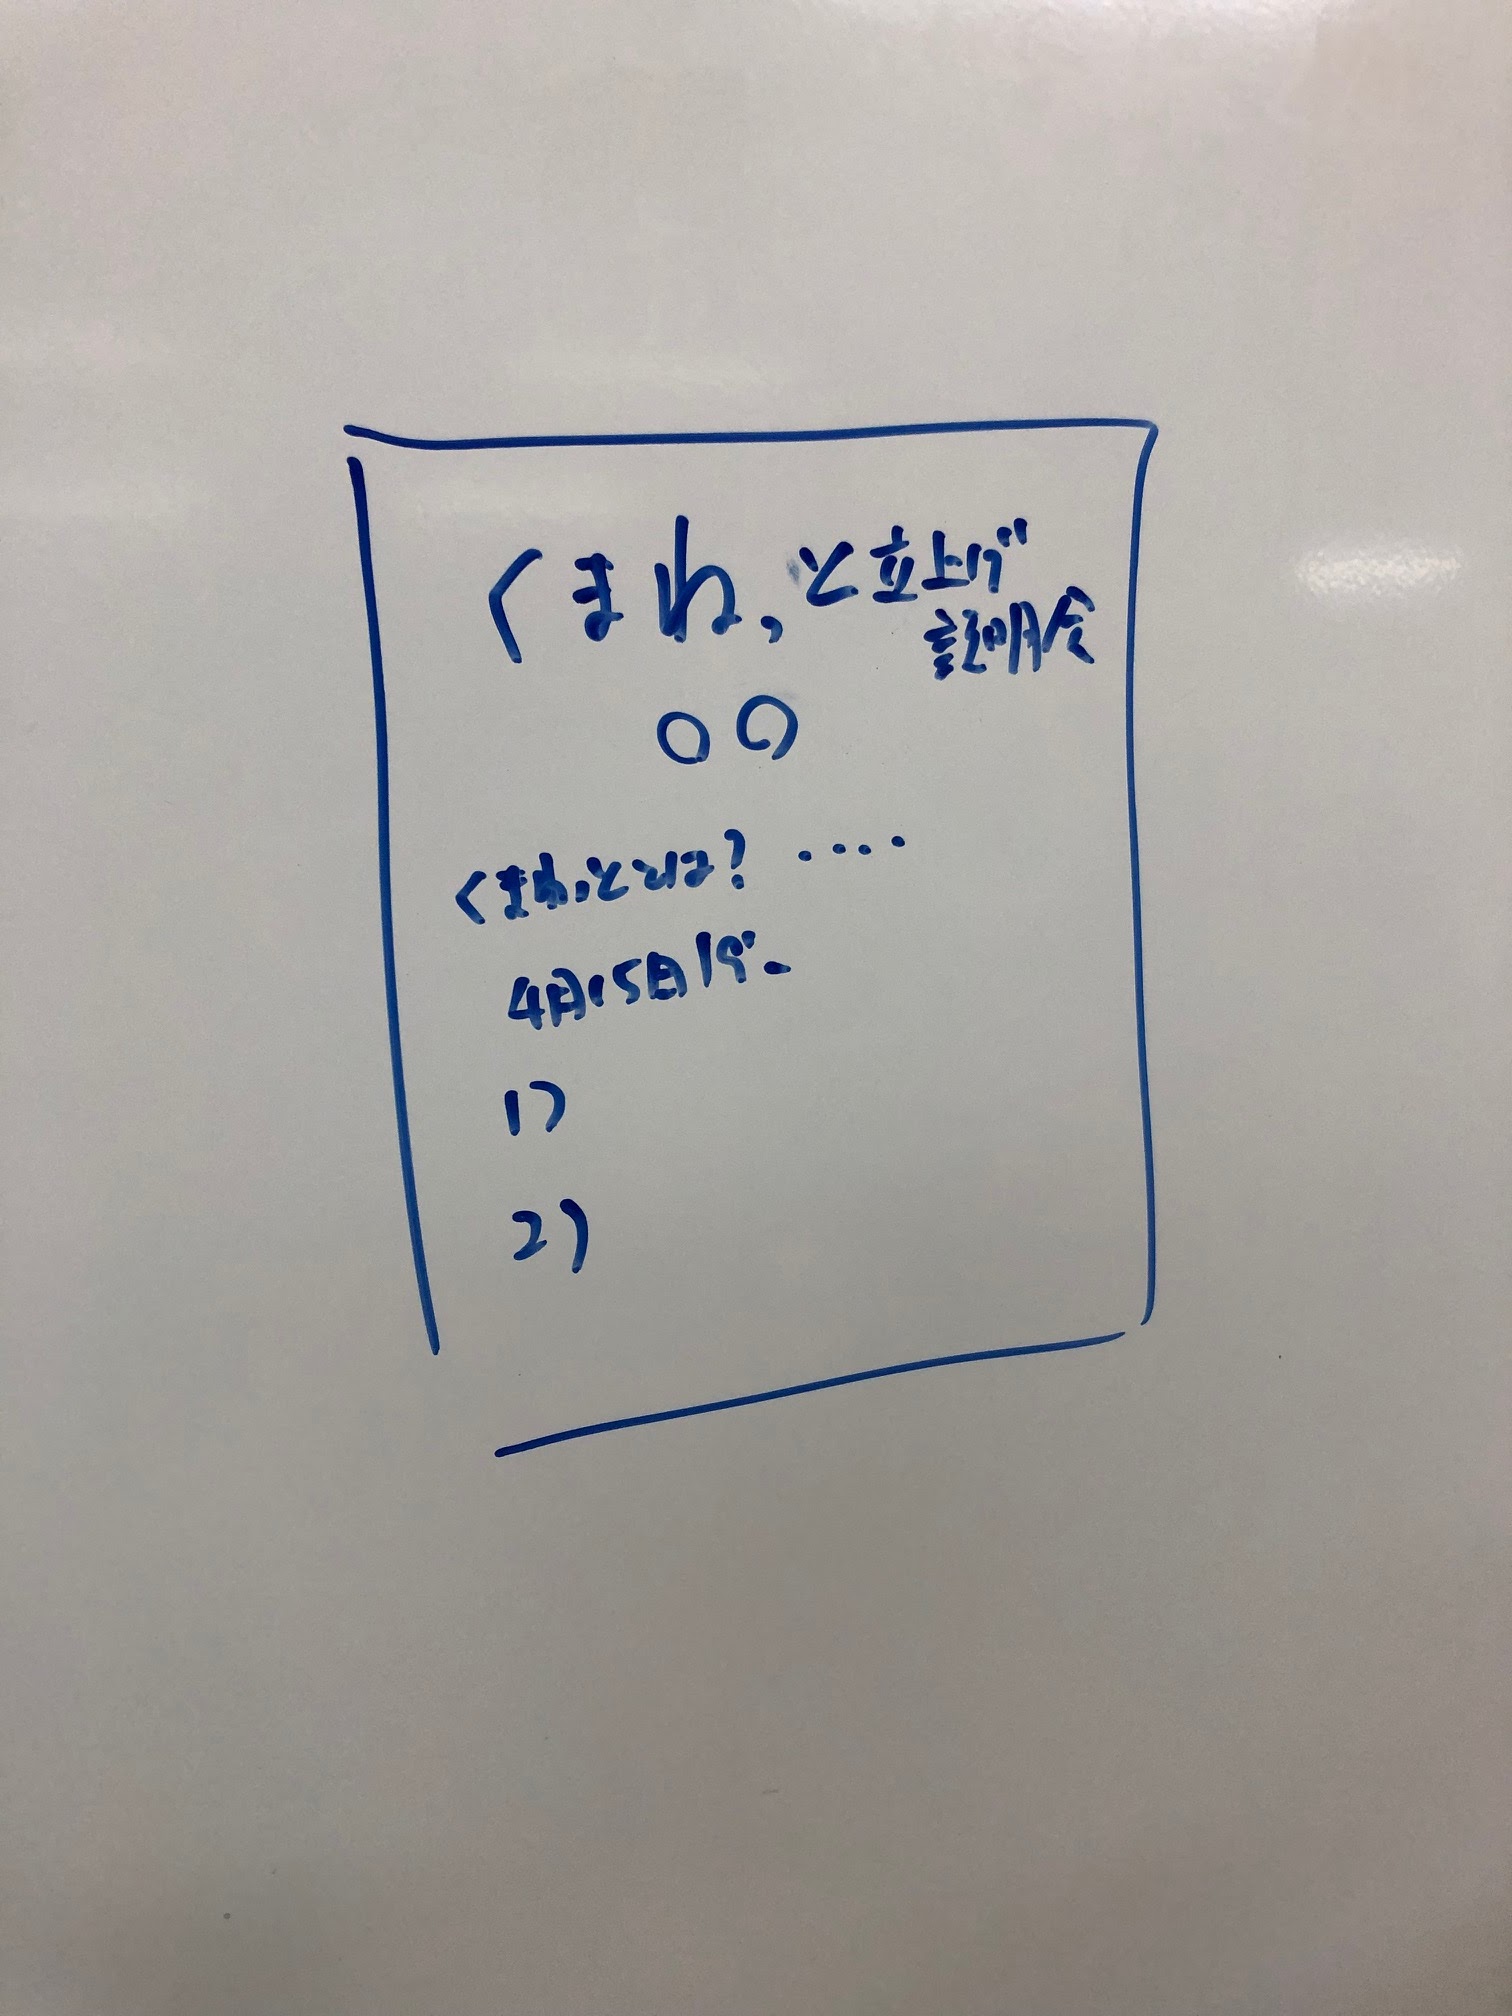 くまね,と立上げ
説明会
○○
くまね,ととは? ‥‥
4月15日
1)
2)